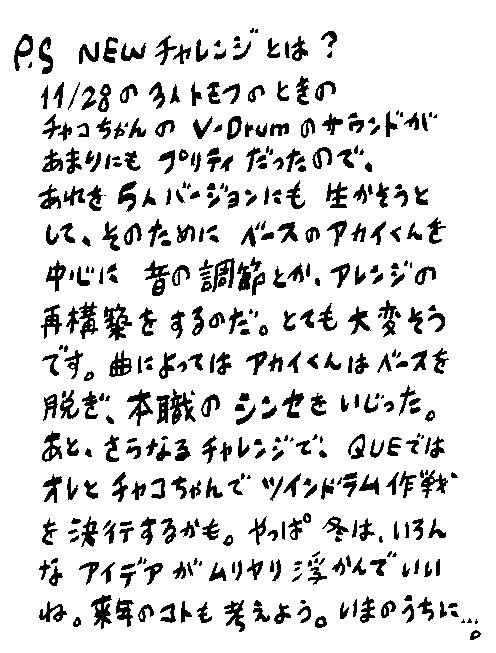 P.S NEWチャレンジとは？
11/28の3人トモフのときの
チャコちゃんのV-Drumのサウンドが
あまりにもプリティだったので、
あれを5人バージョンにも生かそうと
して、そのためにベースのアカイくんを
中心に音の調節とか、アレンジの
再構築をするのだ。とても大変そう
です。曲によってはアカイくんはベースを
脱ぎ、本職のシンセをいじった。
あと、さらなるチャレンジで、QUEでは
オレとチャコちゃんでツインドラム作戦
を決行するかも。やっぱ冬は、いろん
なアイデアがムリヤリ浮かんでいい
ね。来年のコトも考えよう。いまのうちに…。